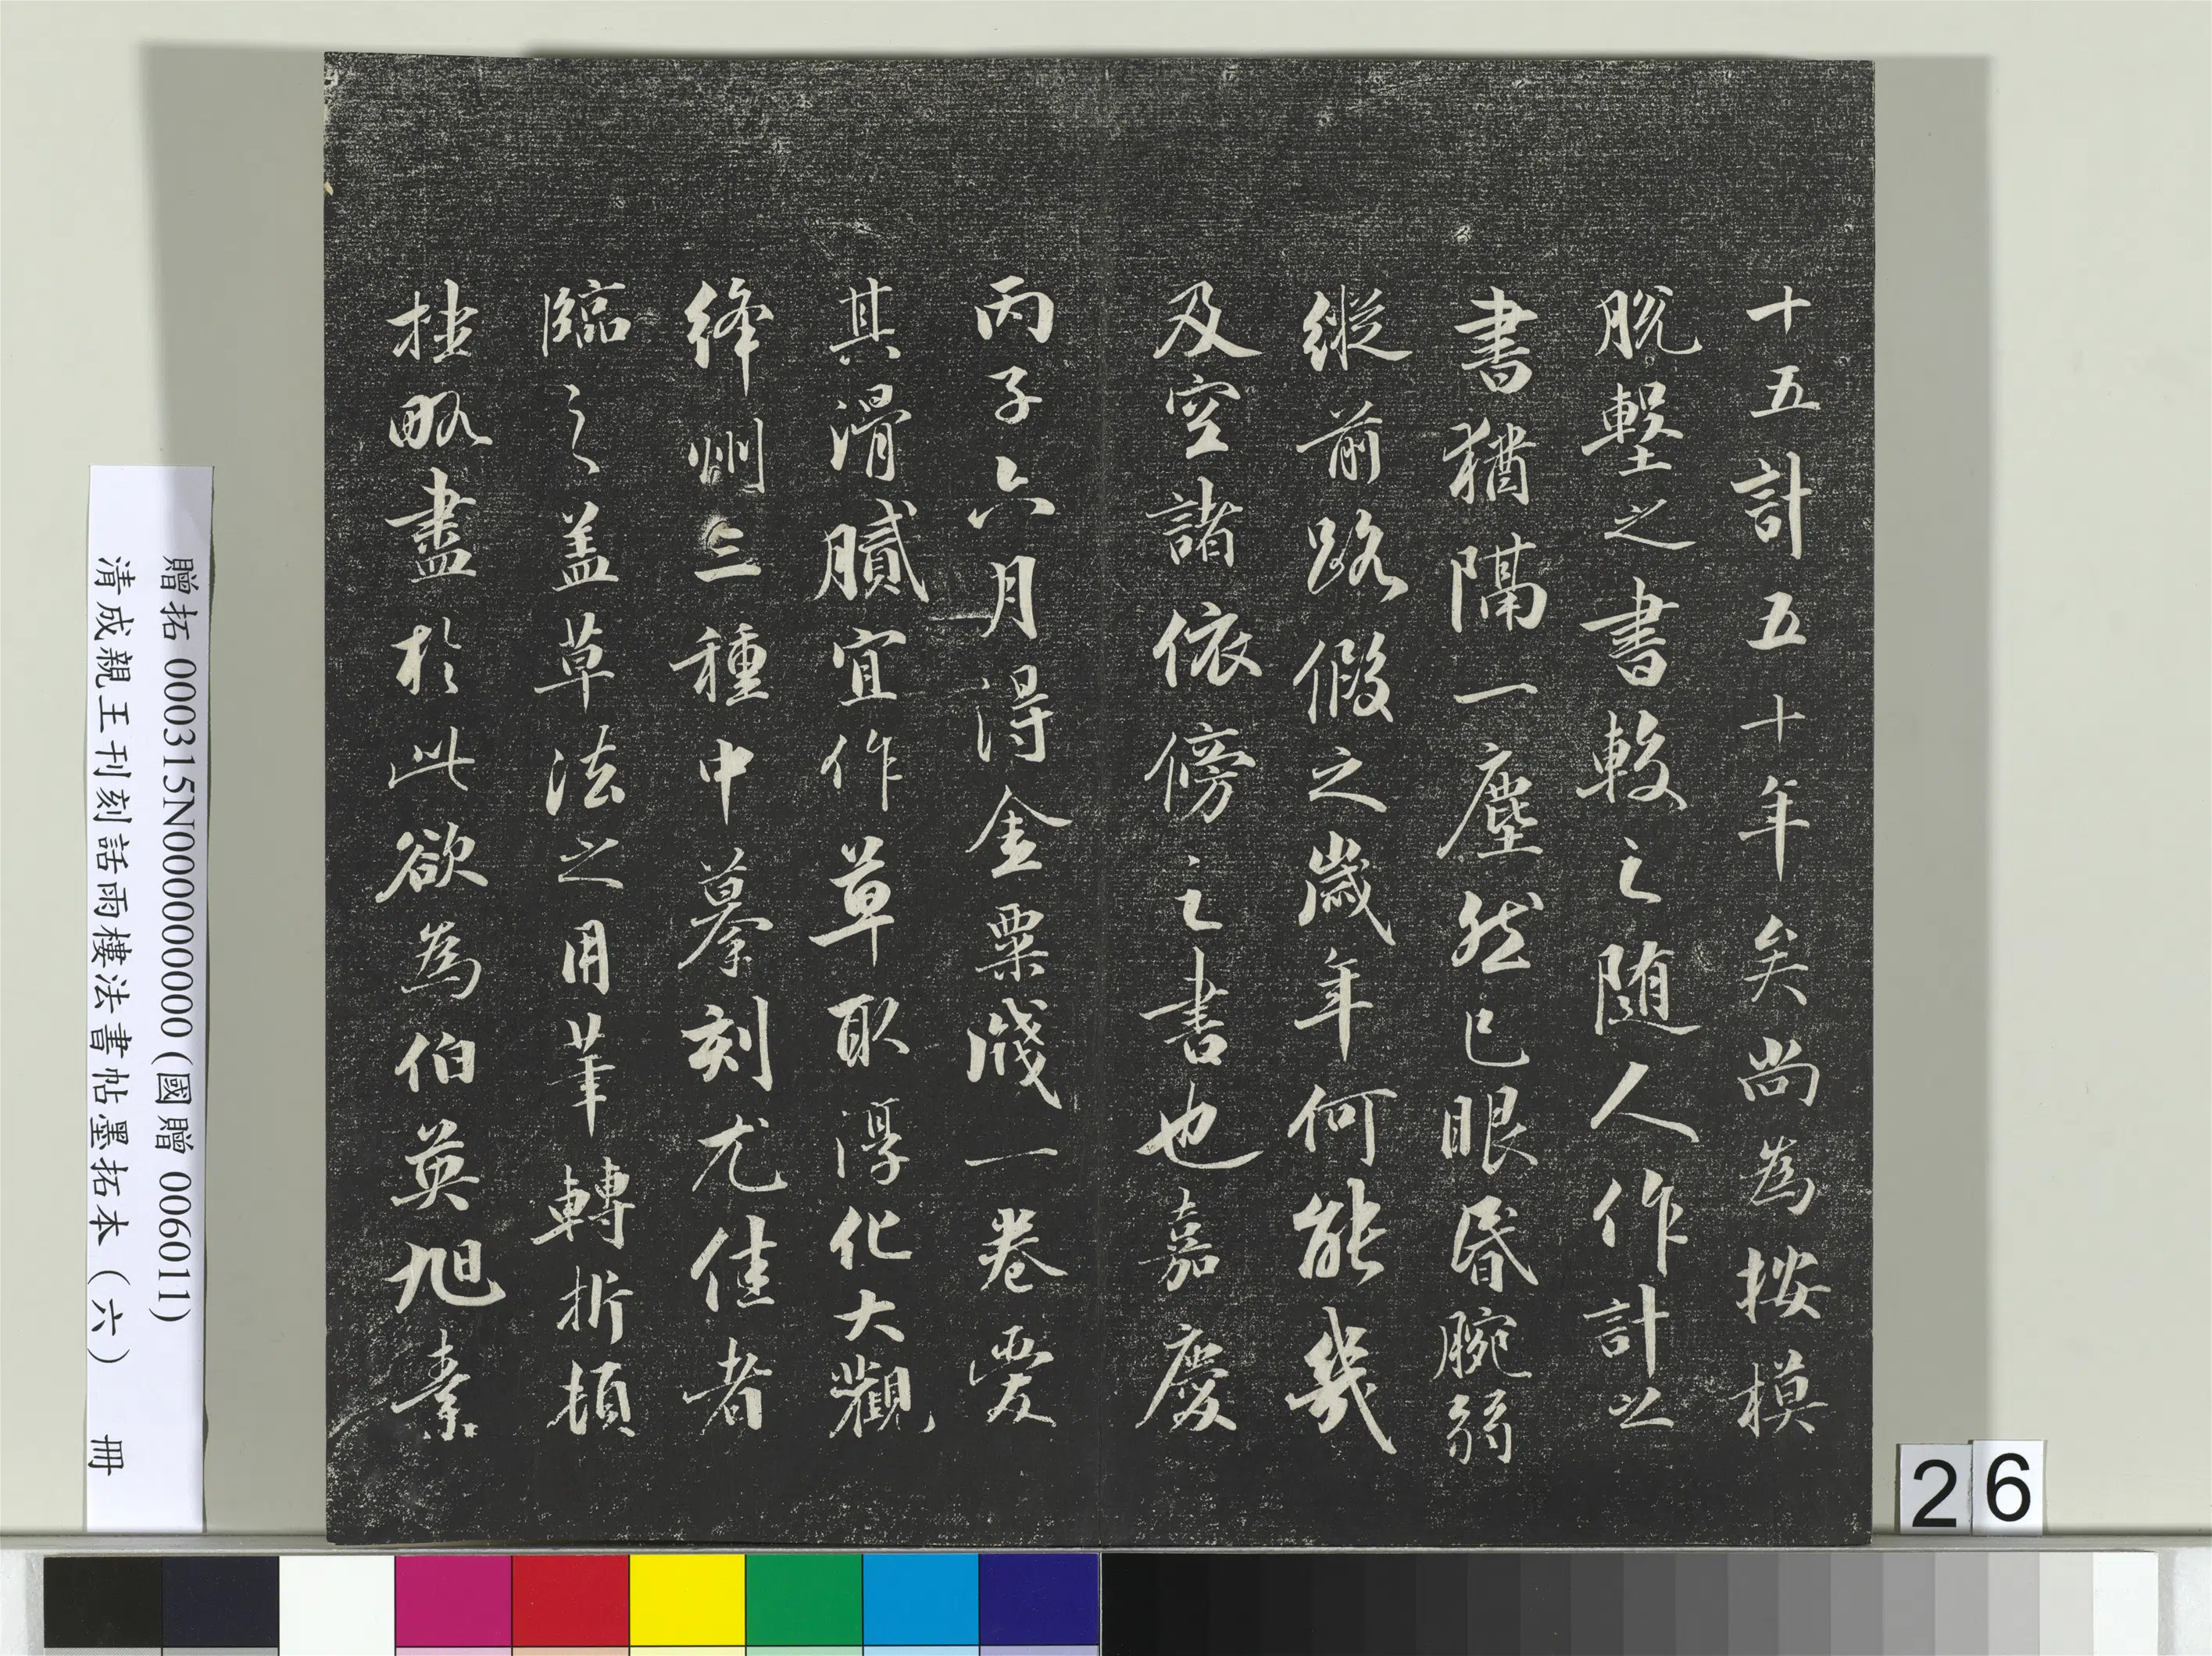 十五計五十年矣尚為按模
脫墼之書較之随人作計之
書猶隔一塵然已眼昏腕弱
縱前路假之歲年何能幾
及空諸依傍之書也嘉慶
丙子六月得金粟牋一卷愛
其滑膩宜作草取淳化大觀
絳州三種中摹刻尤佳者
臨之盖草法之用筆轉折頓
挫略盡於此欲為伯英旭素
贈拓 000315N000000000 (國贈 006011)
清成親王刊刻話雨樓法書帖墨拓本（六） 冊
26